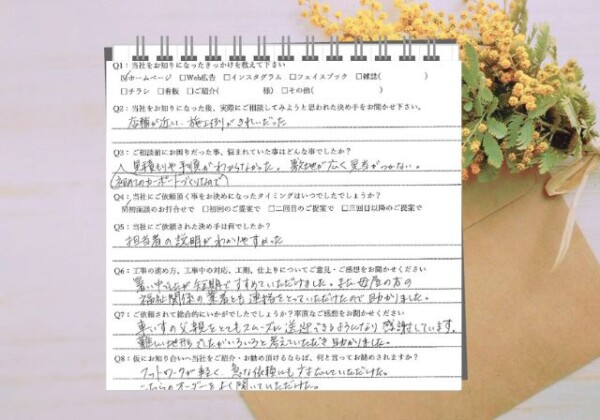 Q1：当社をお知りになったきっかけを教えて下さい
☑ホームページ □Web広告 □インスタグラム □フェイスブック □雑誌( )
□チラシ □看板 □ご紹介( 様) □その他( )
Q2：当社をお知りになった後、実際にご相談してみようと思われた決め手をお聞かせ下さい。
店舗が近い、施工例がきれいだった
Q3：ご相談前にお困りだった事、悩まれていた事はどんな事でしたか？
見積りや手順がわからなかった。敷地が広く見当がつかない。
(初めてのカーポートづくりなので)
Q4：当社にご依頼頂く事をお決めになったタイミングはいつでしたでしょうか？
☑初回面談のお打合せで □初回のご提案で □二回目のご提案で □三回目以降のご提案で
Q5：当社にご依頼された決め手は何でしたか？
担当者の説明がわかりやすかった
Q6：工事の進め方、工事中の対応、工期、仕上りについてご意見・ご感想をお聞かせください
暑い中でしたが短期ですすめていただけました。また
福祉関係の業者とも連絡をとっていただけたので助かりました。
Q7：ご依頼されて総合的にいかがでしたでしょうか？率直なご感想をお聞かせください
車いすの父親をとてもスムーズに送迎できるようになり感謝しています。
難しい地形でしたがいろいろと考えていただき助かりました。
Q8：仮にお知り合いへ当社をご紹介・お勧め頂けるならば、何と言ってお勧めされますか？
フットワークが軽く、急な依頼にも対応していただけた。
こちらのオーダーをよく聞いていただけた。